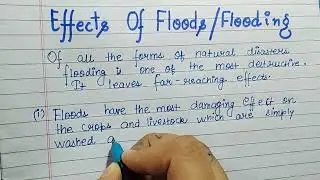 Effects Of Floods/Flooding
Of all the forms of natural disasters
flooding is one of the most destructive.
It leaves far-reaching effects.
(1) Floods have the most damaging effect on
the crops and livestock which are simply
washed a